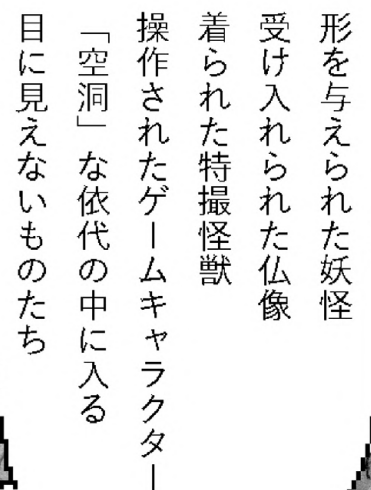 形を与えられた妖怪
受け入れられた仏像
着られた特撮怪獣
操作されたゲームキャラクター
「空洞」な依代の中に入る
目に見えないものたち